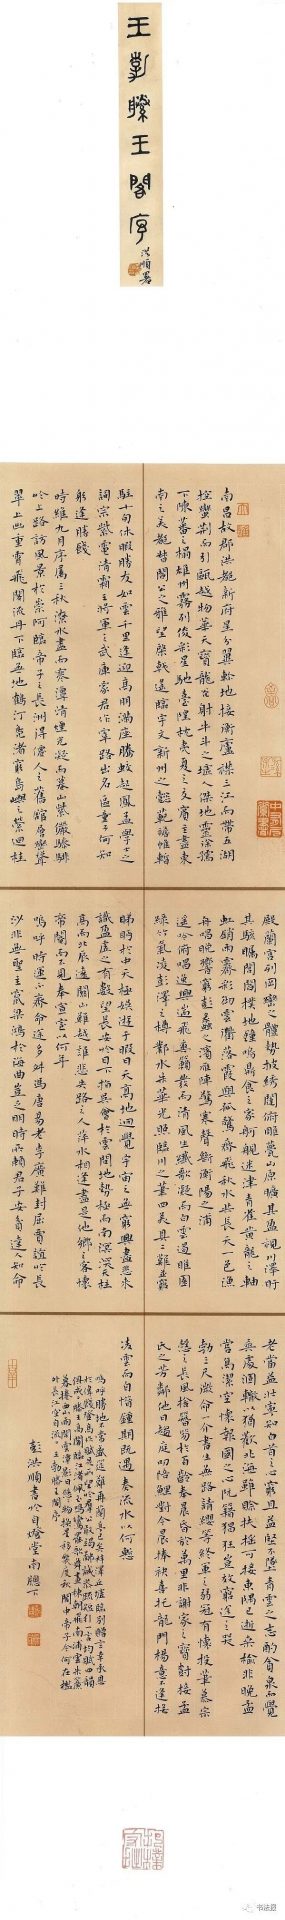 王勃滕王閣序
洪順署
南昌故郡洪都新府星分翼軫地接衡廬襟三江而帶五湖
控蠻荊而引甌越物華天寶龍光射牛斗之墟人傑地靈徐孺
下陳蕃之榻雄州霧列俊彩星馳臺隍枕夷夏之交賓主盡東
南之美都督閻公之雅望棨戟遙臨宇文新州之懿範襜帷暫
駐十旬休暇勝友如雲千里逢迎高朋滿座騰蛟起鳳孟學士之
詞宗紫電清霜王將軍之武庫家君作宰路出名區童子何知
躬逢勝餞
時維九月序屬三秋潦水盡而寒潭清煙光凝而暮山紫儼驂騑
於上路訪風景於崇阿臨帝子之長洲得僊人之舊館層巒聳
翠上出重霄飛閣流丹下臨無地鶴汀鳧渚窮島嶼之縈迴桂
殿蘭宮列岡巒之體勢披繡闥俯雕甍山原曠其盈視川澤盱
其駭矚閭閻撲地鐘鳴鼎食之家舸艦迷津青雀黃龍之軸
虹銷雨霽彩徹雲衢落霞與孤鶩齊飛秋水共長天一色漁
舟唱晚響窮彭蠡之濱雁陣驚寒聲斷衡陽之浦
遙吟俯唱逸興遄飛爽籟發而清風生纖歌凝而白雲遏睢園
綠竹氣凌彭澤之樽鄴水朱華光照臨川之筆四美具二難並窮
睇眄於中天極娛遊于暇日天高地迥覺宇宙之無窮興盡悲來
識盈虛之有數望長安於日下指吳會於雲間地勢極而南溟深天柱
高而北辰遠關山難越誰悲失路之人萍水相逢盡是他鄉之客懷
帝閽而不見奉宣室以何年
嗚呼時運不齊命途多舛馮唐易老李廣難封屈賈誼於長
沙非無聖主竄梁鴻於海曲豈乏明時所賴君子安貧達人知命
老當益壯寧知白首之心窮且益堅不墜青雲之志酌貪泉而覺
爽處涸轍以猶歡北海雖賒扶搖可接東隅已逝桑榆非晚孟
嘗高潔空懷報國之心阮籍猖狂豈效窮途之哭
勃三尺微命一介書生無路請纓等終軍之弱冠有懷投筆慕宗
愨之長風捨簪笏於百齡奉晨昏於萬里非謝家之寶樹接孟
氏之芳鄰他日趨庭叨陪鯉對今晨捧袂喜托龍門楊意不逢撫
凌雲而自惜鍾期既遇奏流水以何慙
嗚呼勝地不常盛筵難再蘭亭已矣梓澤丘墟臨別贈言幸承恩
於偉餞登高作賦是所望於群公敢竭鄙誠恭疏短引一言均賦四韻
俱成滕王高閣臨江渚佩玉鳴鸞罷歌舞畫棟朝飛南浦雲朱簾
暮捲西山雨閒雲潭影日悠悠物換星移幾度秋閣中帝子今何在檻
外長江空自流王勃滕王閣序
彭洪順書於自燈堂南牕下
书法报